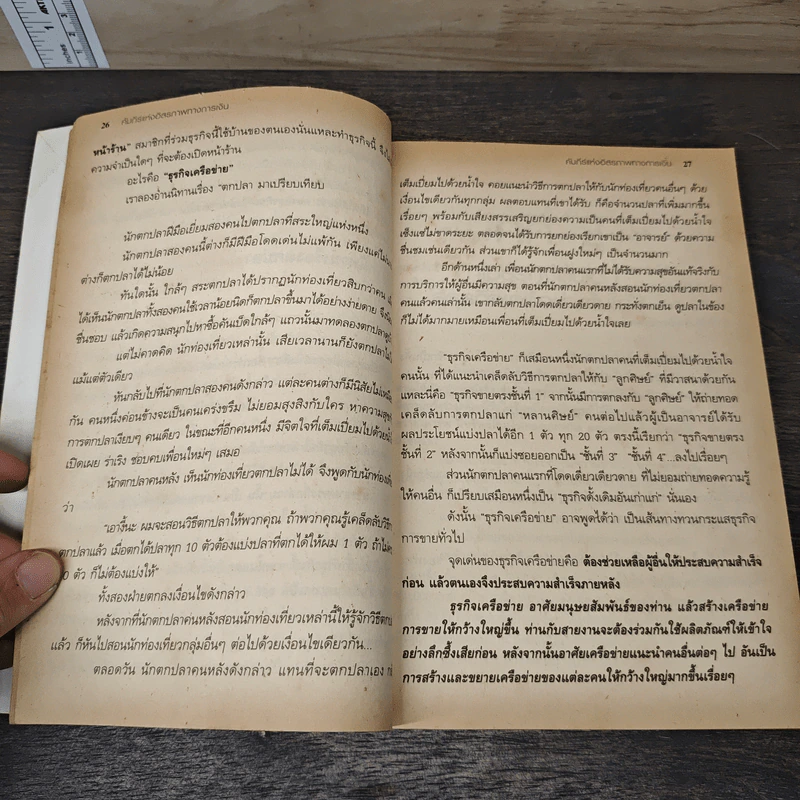 26 คัมภีร์แห่งอิสรภาพทางการเงิน
หน้าร้าน" สมาชิกที่ร่วมธุรกิจนี้ใช้บ้านของตนเองนั่นแหละทำธุรกิจนี้
ความจำเป็นใดๆ ที่จะต้องเปิดหน้าร้าน
อะไรคือ "ธุรกิจเครือข่าย"
เราลองอ่านนิทานเรื่อง "ตกปลา มาเปรียบเทียบ
นักตกปลาฝีมือเยี่ยมสองคนไปตกปลาที่สระใหญ่แห่งหนึ่ง
นักตกปลาสองคนนี้ต่างก็มีฝีมือโดดเด่นไม่แพ้กัน เพียงแค่ไม่
ต่างก็ตกปลาได้ไม่น้อย
ทันใดนั้น ใกล้ๆ สระตกปลาได้ปรากฏนักท่องเที่ยวสิบกว่าคน
ได้เห็นนักตกปลาทั้งสองคนใช้เวลาน้อยนิดก็ตกปลาขึ้นมาได้อย่างง่ายดาย
ชื่นชอบ แล้วเกิดความสนุกไปหาซื้อคันเบ็ดใกล้ๆ แถวนั้นมาทดลองตกปลา
แต่ไม่คาดคิด นักท่องเที่ยวเหล่านั้น เสียเวลานานก็ยังตกปลาไม่
แม้แต่ตัวเดียว
หันกลับไปที่นักตกปลาสองคนดังกล่าว แต่ละคนต่างก็มีนิสัยไม่เหมือน
กัน คนหนึ่งค่อนข้างจะเป็นคนเคร่งขรึม ไม่ยอมสุงสิงกับใคร หาความสุข
การตกปลาเงียบๆ คนเดียว ในขณะที่อีกคนหนึ่ง มีจิตใจที่เต็มเปี่ยมไปด้วยน้ำ
เปิดเผย ร่าเริง ชอบคบเพื่อนใหม่ๆ เสมอ
นักตกปลาคนหลัง เห็นนักท่องเที่ยวตกปลาไม่ได้ จึงพูดกับนักท่องเที่ยว
ว่า
"เอางี้นะ ผมจะสอนวิธีตกปลาให้พวกคุณ ถ้าพวกคุณรู้เคล็ดลับวิธี
ตกปลาแล้ว เมื่อตกได้ปลาทุก 10 ตัวต้องแบ่งปลาที่ตกได้ให้ผม 1 ตัว ถ้าไม่
0 ตัว ก็ไม่ต้องแบ่งให้"
ทั้งสองฝ่ายตกลงเงื่อนไขดังกล่าว
หลังจากที่นักตกปลาคนหลังสอนนักท่องเที่ยวเหล่านี้ให้รู้จักวิธีตกปลา
แล้ว ก็หันไปสอนนักท่องเที่ยวกลุ่มอื่นๆ ต่อไปด้วยเงื่อนไขเดียวกัน...
ตลอดวัน นักตกปลาคนหลังดังกล่าว แทนที่จะตกปลาเอง
คัมภีร์แห่งอิสรภาพทางการเงิน 27
เต็มเปี่ยมไปด้วยน้ำใจ คอยแนะนำวิธีการตกปลาให้กับนักท่องเที่ยวคนอื่นๆ ด้วย
เงื่อนไขเดียวกันทุกกลุ่ม ผลตอบแทนที่เขาได้รับ ก็คือจำนวนปลาที่เพิ่มมากขึ้น
เรื่อยๆ พร้อมกับเสียงสรรเสริญยกย่องความเป็นคนที่เต็มเปี่ยมไปด้วยน้ำใจ
เซ็งแซ่ไม่ขาดระยะ ตลอดจนได้รับการยกย่องเรียกเขาเป็น "อาจารย์" ด้วยความ
ชื่นชมเช่นเดียวกัน ส่วนเขาก็ได้รู้จักเพื่อนฝูงใหม่ๆ เป็นจำนวนมาก
อีกด้านหนึ่งเล่า เพื่อนนักตกปลาคนแรกที่ไม่ได้รับความสุขอันแท้จริงกับ
การบริการให้ผู้อื่นมีความสุข ตอนที่นักตกปลาคนหลังสอนนักท่องเที่ยวตกปลา
คนแล้วคนเล่านั้น เขากลับตกปลาโดดเดี่ยวเดียวดาย กระทั่งตกเย็น ดูปลาในข้อง
ก็ไม่ได้มากมายเหมือนเพื่อนที่เต็มเปี่ยมไปด้วยน้ำใจเลย
"ธุรกิจเครือข่าย" ก็เสมือนหนึ่งนักตกปลาคนที่เต็มเปี่ยมไปด้วยน้ำใจ
คนนั้น ที่ได้แนะนำเคล็ดลับวิธีการตกปลาให้กับ "ลูกศิษย์" ที่มีวาสนาด้วยกัน
และนี่คือ "ธุรกิจขายตรงชั้นที่ 1" จากนั้นมีการตกลงกับ "ลูกศิษย์" ให้ถ่ายทอด
เคล็ดลับการตกปลาแก่ "หลานศิษย์" คนต่อไปแล้วผู้เป็นอาจารย์ได้รับ
ผลประโยชน์แบ่งปลาได้อีก 1 ตัว ทุก 20 ตัว ตรงนี้เรียกว่า "ธุรกิจขายตรง
ชั้นที่ 2" หลังจากนั้นก็แบ่งซอยออกเป็น "ชั้นที่ 3" "ชั้นที่ 4"...ลงไปเรื่อยๆ
ส่วนนักตกปลาคนแรกที่โดดเดี่ยวเดียวดาย ที่ไม่ยอมถ่ายทอดความรู้
ให้คนอื่น ก็เปรียบเสมือนหนึ่งเป็น "ธุรกิจดั้งเดิมอันเก่าแก่" นั่นเอง
ดังนั้น "ธุรกิจเครือข่าย" อาจพูดได้ว่า เป็นเส้นทางทวนกระแสธุรกิจ
การขายทั่วไป
จุดเด่นของธุรกิจเครือข่ายคือ ต้องช่วยเหลือผู้อื่นให้ประสบความสำเร็จ
ก่อน แล้วตนเองจึงประสบความสำเร็จภายหลัง
ธุรกิจเครือข่าย อาศัยมนุษยสัมพันธ์ของท่าน แล้วสร้างเครือข่าย
การขายให้กว้างใหญ่ขึ้น ท่านกับสายงานจะต้องร่วมกันใช้ผลิตภัณฑ์ให้เข้าใจ
อย่างลึกซึ้งเสียก่อน หลังจากนั้นอาศัยเครือข่ายแนะนำคนอื่นต่อๆ ไป อันเป็น
การสร้างและขยายเครือข่ายของแต่ละคนให้กว้างใหญ่มากขึ้นเรื่อยๆ